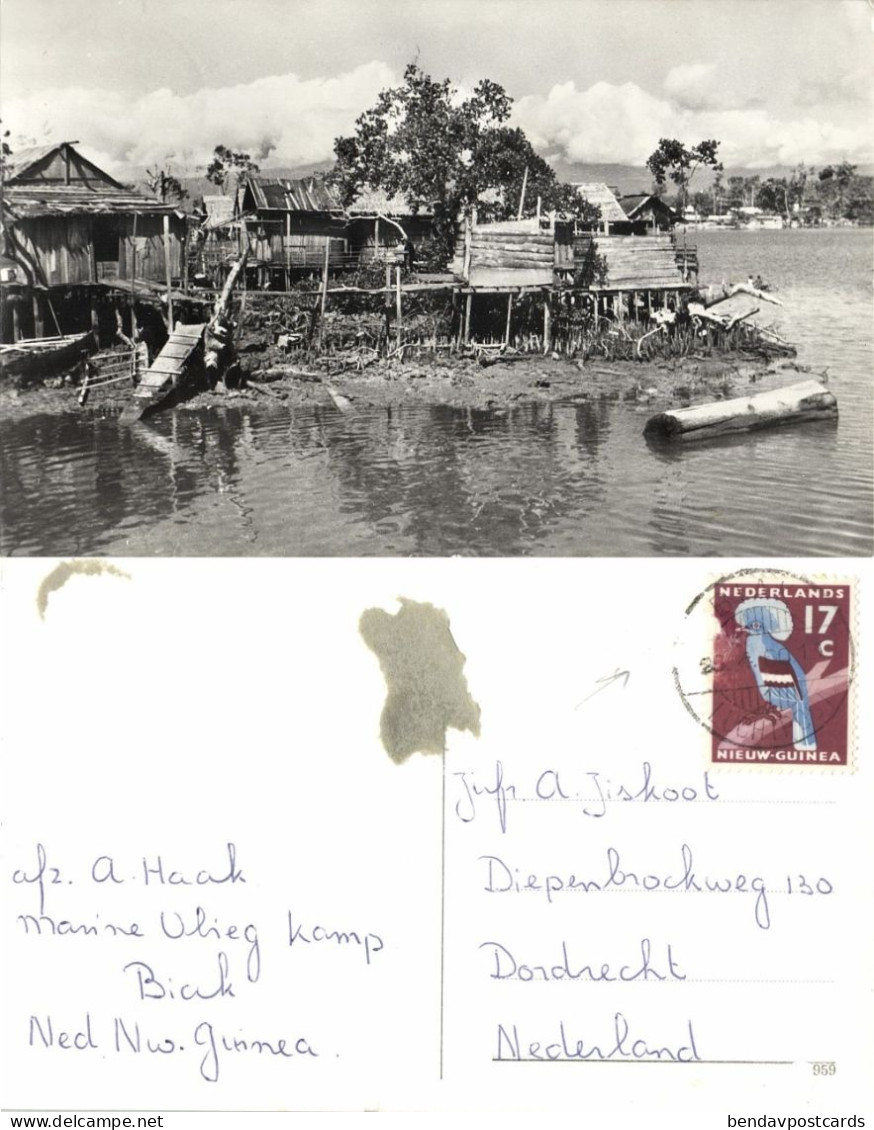 NEDERLANDS
17
C
NIEUW-GUINEA
Jufr A. Jiskoot
Diepenbrockweg 130
Dordrecht
Nederland
afz. A. Haak
marine Vlieg kamp
Biak
Ned. Nw. Guinea.
959
bendavpostcards